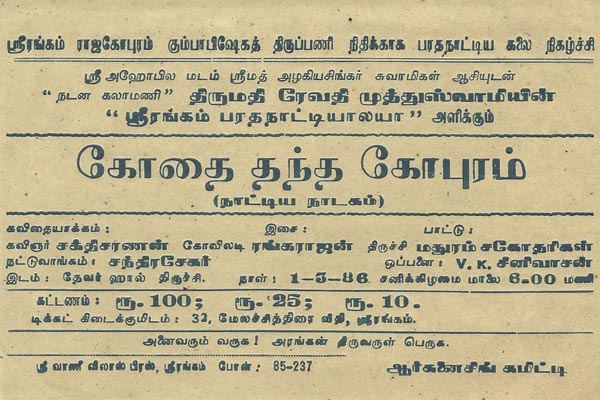 ஸ்ரீரங்கம் ராஜகோபுரம் கும்பாபிஷேகத் திருப்பணி நிதிக்காக பரதநாட்டிய கலை நிகழ்ச்சி
ஸ்ரீ அஹோபில மடம் ஸ்ரீமத் அழகியசிங்கர் சுவாமிகள் ஆசியுடன்
“ நடன கலாமணி ” திருமதி ரேவதி முத்துஸ்வாமியின்
“ ஸ்ரீரங்கம் பரதநாட்டியாலயா ” அளிக்கும்
கோதை தந்த கோபுரம்
(நாட்டிய நாடகம்)
கவிதையாக்கம் : இசை : பாட்டு :
கவிஞர் சக்திசரணன் கோவிலடி ரங்கராஜன் திருச்சி மதுரம் சகோதரிகள்
நட்டுவாங்கம் : சந்திரசேகர் ஒப்பனை : V. K. சீனிவாசன்
இடம் : தேவர் ஹால் திருச்சி. நாள் : 1-3-86. சனிக்கிழமை மாலை 6-00 மணி
கட்டணம் : ரூ. 100; ரூ. 25; ரூ. 10.
டிக்கட் கிடைக்குமிடம் : 32, மேலச்சித்திரை வீதி, ஸ்ரீரங்கம்.
அனைவரும் வருக ! அரங்கன் திருவருள் பெருக.
ஸ்ரீ வாணி விலாஸ் பிரஸ், ஸ்ரீரங்கம் போன் : 85-237 ஆர்கனைசிங் கமிட்டி